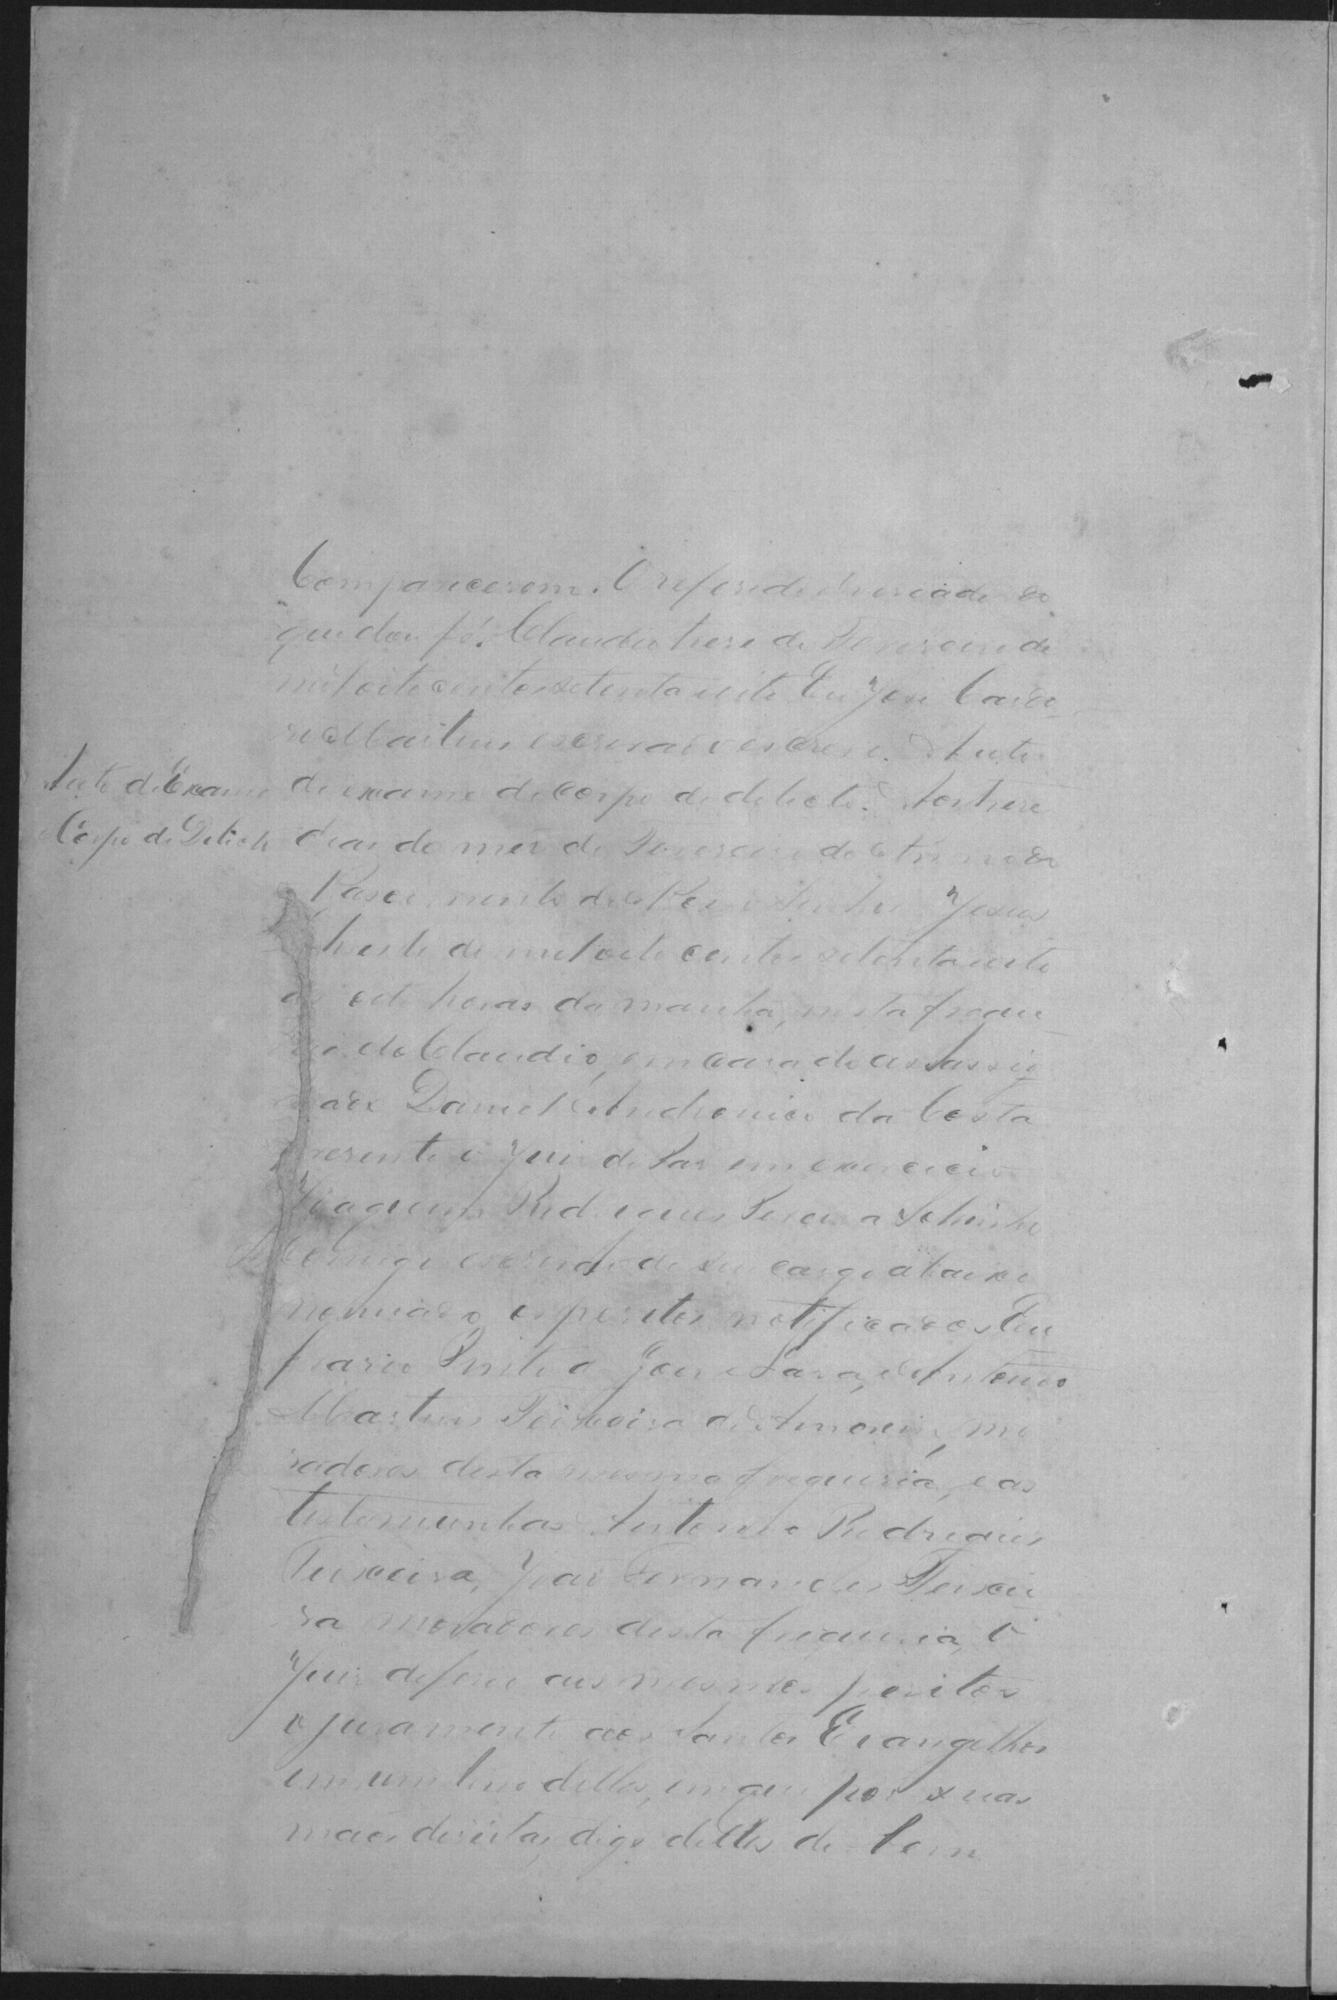 Comparecerem. O referido é verdade do
que dou fé. Claudio trese de Fevereiro de
mil oito centos setenta e oito. Eu José Caro
Martins escrivão o escrevi. Auto
Auto de Exame
Corpo de Delicto
de exame de corpo de delicto. Aos trese
dias do mez de Fevereiro do Anno do
Nascimento de Nosso Senhor Jesus
Christo de mil oito centos setenta e oito
as oito horas da manhã, nesta fregue
sia do Claudio, em casa do
Daniel Andronico da Costa
presente o Juiz de Paz em exercicio
Joaquim Rodrigues Pereira Sobrinho
Comigo escrivão de seu cargo abaixo
nomeado, os peritos notificados Eu
frazio Pinto e Antonio
Martins Teixeira de Amorim, mo
radores desta mesma freguesia, e as
testemunhas Antonio Rodrigues
Teixeira, João Fernandes Teixei
ra moradores desta freguesia, O
Juiz deferio aos mesmos peritos
o juramento aos Santos Evangelhos
em um livro delles, em que por suas
mãos direitas, digo delles de bem